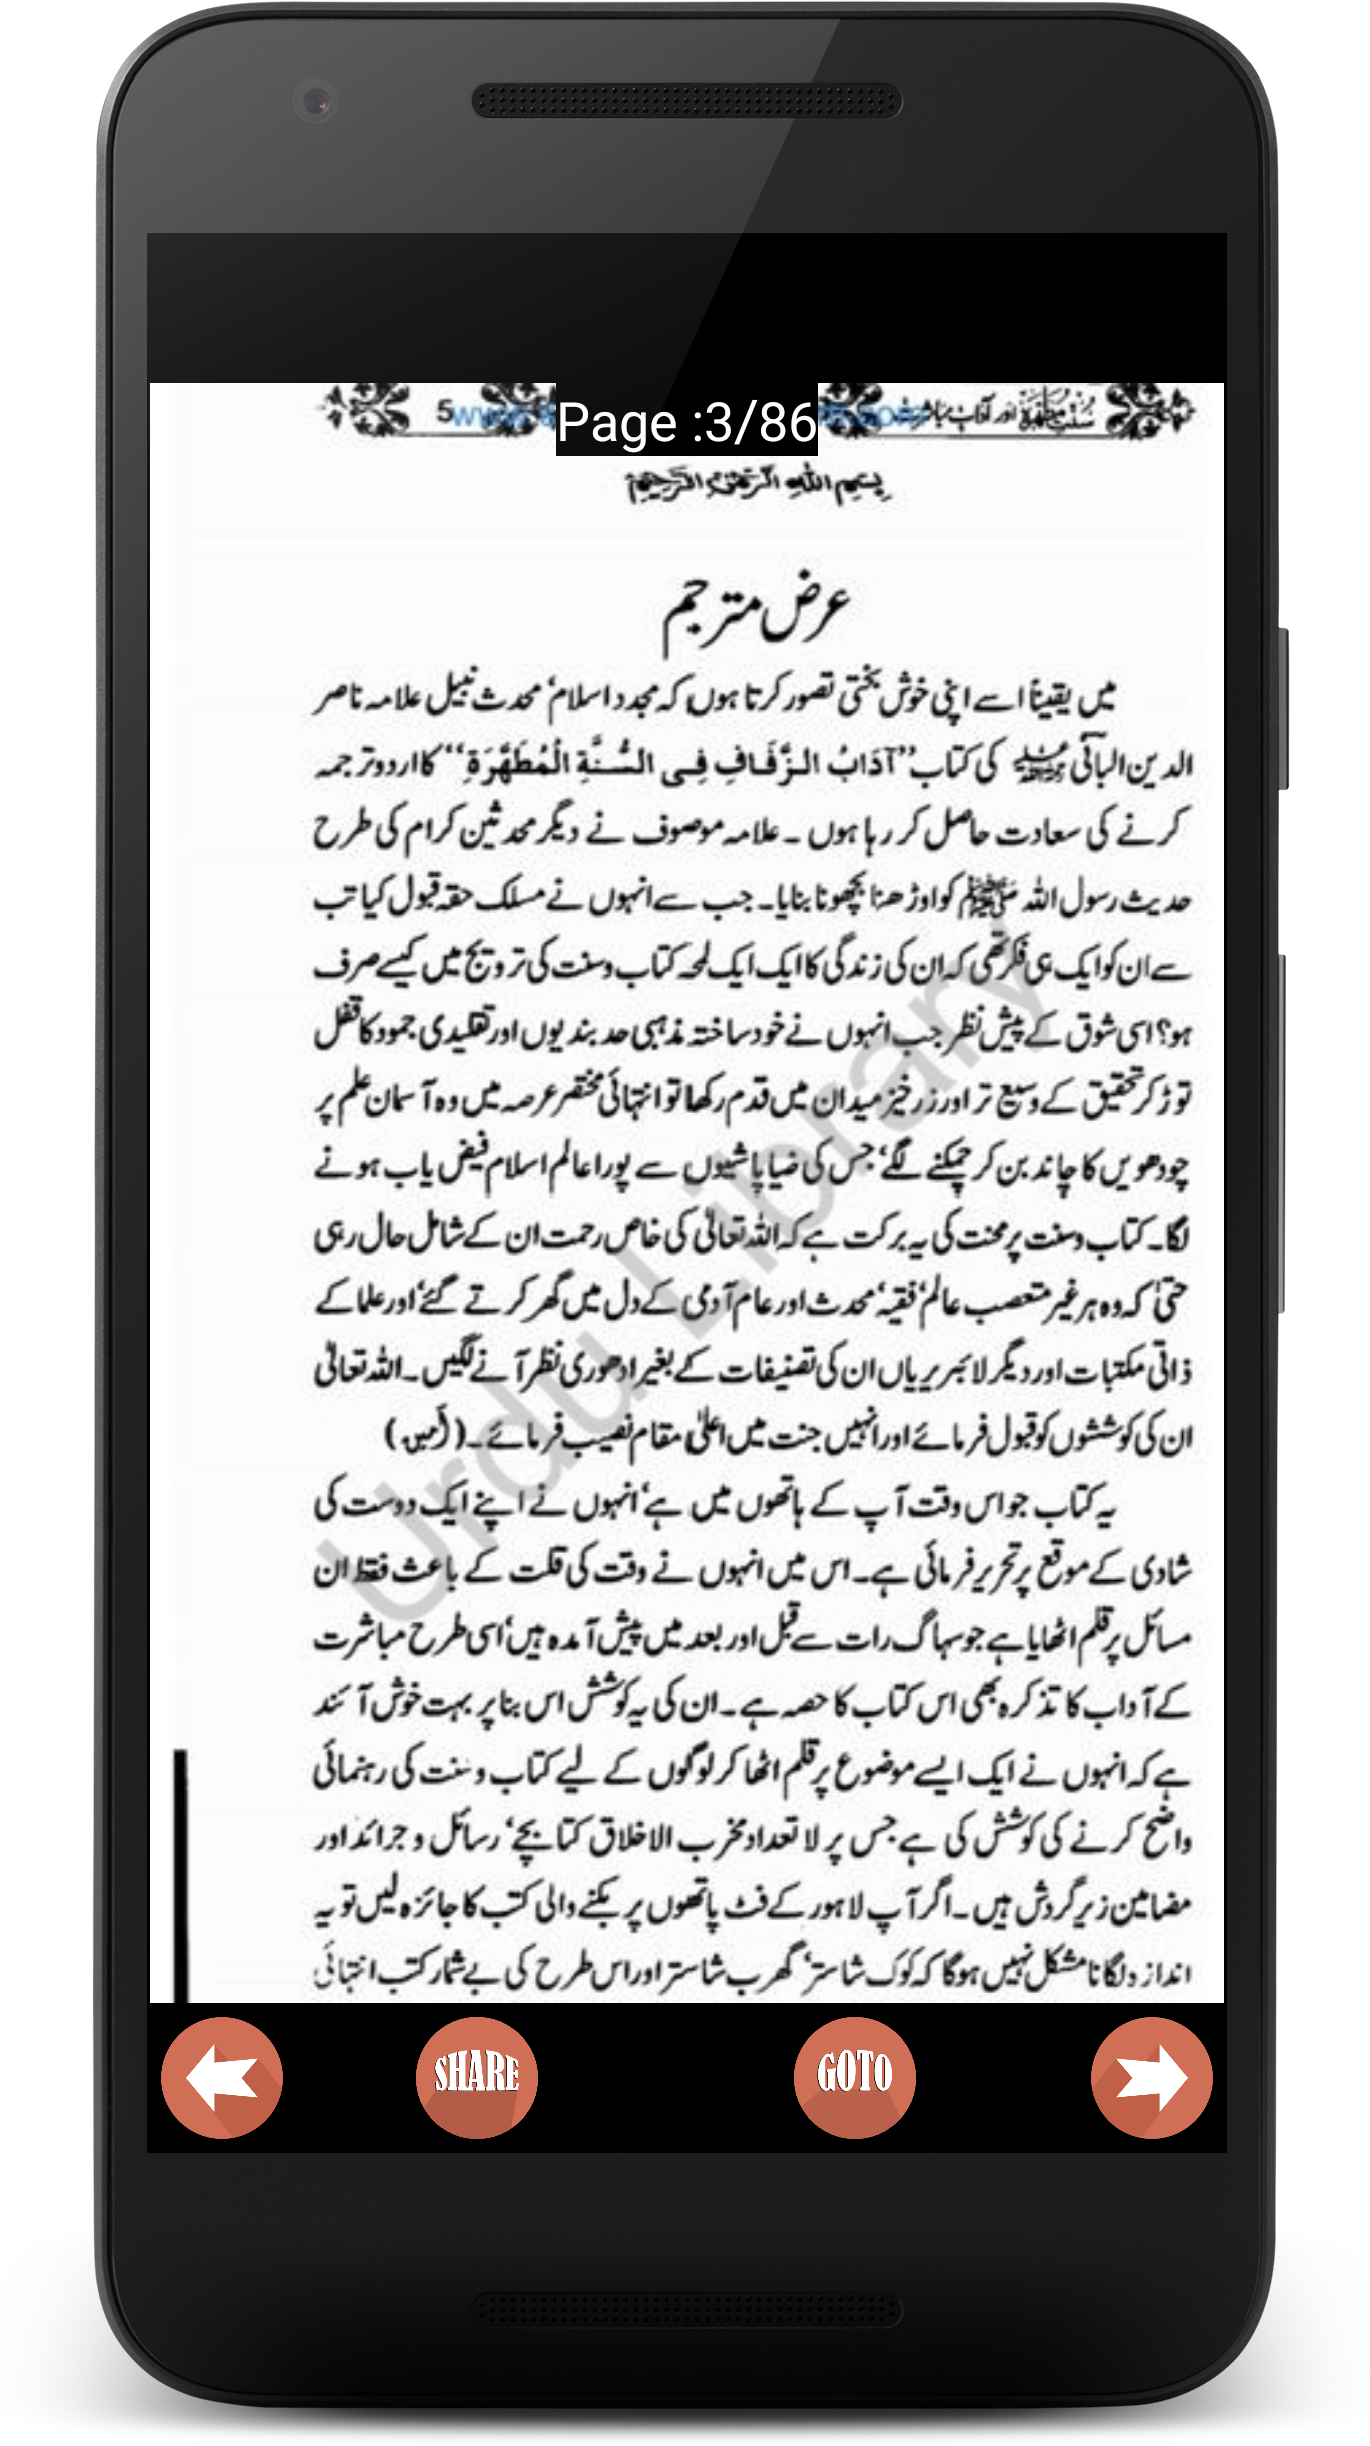 سُنّتِ مطہّرہ اور آدابِ مباشرت
Page :3/86
5
بِسْمِ اللّٰهِ الرَّحْمٰنِ الرَّحِيْمِ
عرض مترجم
میں یقیناً اسے اپنی خوش بختی تصور کرتا ہوں کہ مجدد اسلام‘ محدث نبیل علامہ ناصر
الدین البانی رحمہ اللہ کی کتاب ’’آدَابُ الزِّفَافِ فِي السُّنَّةِ الْمُطَهَّرَةِ‘‘ کا اردو ترجمہ
کرنے کی سعادت حاصل کر رہا ہوں ۔ علامہ موصوف نے دیگر محدثین کرام کی طرح
حدیث رسول اللہ ﷺ کو اوڑھنا بچھونا بنایا۔ جب سے انہوں نے مسلک حقہ قبول کیا تب
سے ان کو ایک ہی فکر تھی کہ ان کی زندگی کا ایک ایک لمحہ کتاب وسنت کی ترویج میں کیسے صرف
ہو؟ اسی شوق کے پیش نظر جب انہوں نے خود ساختہ مذہبی حد بندیوں اور تقلیدی جمود کا قفل
توڑ کر تحقیق کے وسیع تر اور زرخیز میدان میں قدم رکھا تو انتہائی مختصر عرصہ میں وہ آسمان علم پر
چودھویں کا چاند بن کر چمکنے لگے‘ جس کی ضیا پاشیوں سے پورا عالم اسلام فیض یاب ہونے
لگا۔ کتاب وسنت پر محنت کی یہ برکت ہے کہ اللہ تعالیٰ کی خاص رحمت ان کے شامل حال رہی
حتیٰ کہ وہ ہر غیر متعصب عالم‘ فقیہ‘ محدث اور عام آدمی کے دل میں گھر کرتے گئے‘ اور علما کے
ذاتی مکتبات اور دیگر لائبریریاں ان کی تصنیفات کے بغیر ادھوری نظر آنے لگیں۔ اللہ تعالیٰ
ان کی کوششوں کو قبول فرمائے اور انہیں جنت میں اعلیٰ مقام نصیب فرمائے۔ (آمین)
یہ کتاب جو اس وقت آپ کے ہاتھوں میں ہے‘ انہوں نے اپنے ایک دوست کی
شادی کے موقع پر تحریر فرمائی ہے۔ اس میں انہوں نے وقت کی قلت کے باعث فقط ان
مسائل پر قلم اٹھایا ہے جو سہاگ رات سے قبل اور بعد میں پیش آمدہ ہیں‘ اسی طرح مباشرت
کے آداب کا تذکرہ بھی اس کتاب کا حصہ ہے۔ ان کی یہ کوشش اس بنا پر بہت خوش آئند
ہے کہ انہوں نے ایک ایسے موضوع پر قلم اٹھا کر لوگوں کے لیے کتاب وسنت کی رہنمائی
واضح کرنے کی کوشش کی ہے جس پر لا تعداد مخرب الاخلاق کتابچے‘ رسائل و جرائد اور
مضامین زیر گردش ہیں۔ اگر آپ لاہور کے فٹ پاتھوں پر بکنے والی کتب کا جائزہ لیں تو یہ
اندازہ لگانا مشکل نہیں ہوگا کہ کوک شاستر‘ گھرب شاستر اور اس طرح کی بے شمار کتب انتہائی
Urdu Library
SHARE
GOTO